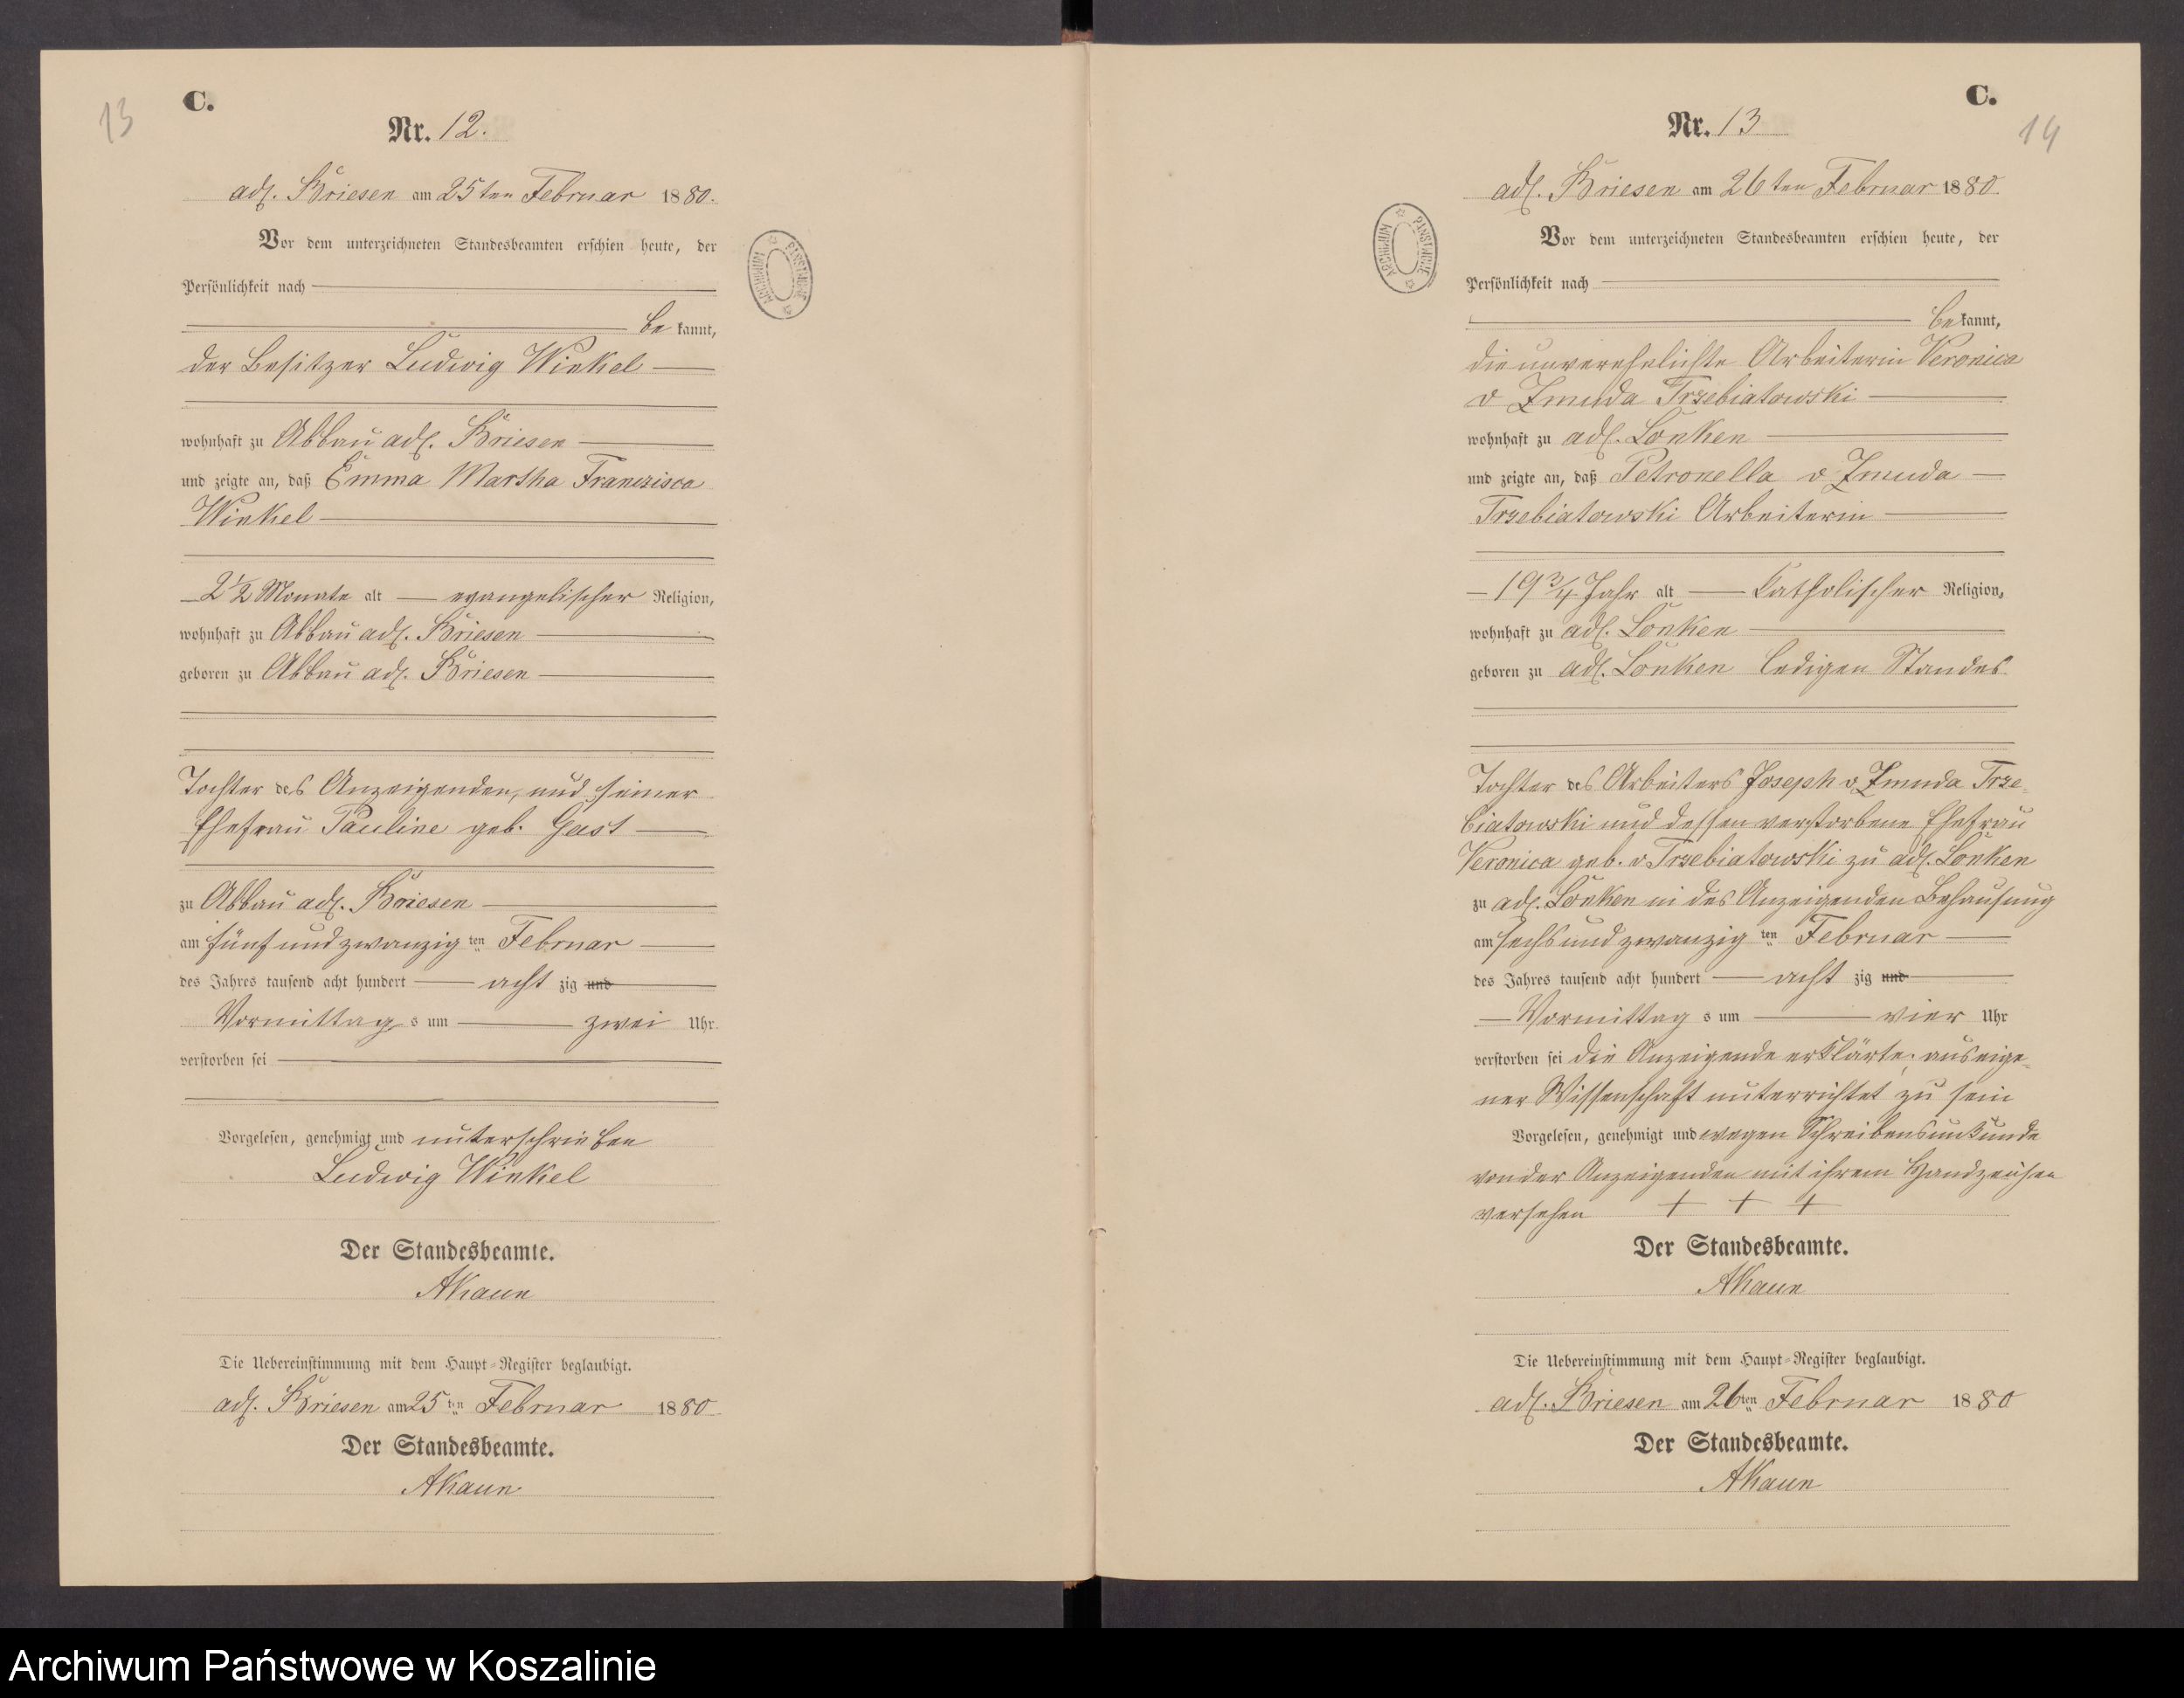 13
C.
Nr. 12.
adl. Briesen am 25ten Februar 1880.
Vor dem unterzeichneten Standesbeamten erschien heute, der
Persönlichkeit nach
be kannt,
der Besitzer Ludwig Winkel
wohnhaft zu Abbau adl. Briesen
und zeigte an, daß Emma Martha Franzisca
Winkel
2 1/2 Monate alt evangelischer Religion,
wohnhaft zu Abbau adl. Briesen
geboren zu Abbau adl. Briesen
Tochter des Anzeigenden, und seiner
Ehefrau Pauline geb. Gast
zu Abbau adl. Briesen
am fünf und zwanzig ten Februar
des Jahres tausend acht hundert acht zig und
Vormittag s um zwei Uhr
verstorben sei
Vorgelesen, genehmigt und unterschrieben
Ludwig Winkel
Der Standesbeamte.
AKaun
Die Uebereinstimmung mit dem Haupt-Register beglaubigt.
adl. Briesen am 25 ten Februar 1880
Der Standesbeamte.
AKaun
C.
14
Nr. 13
adl. Briesen am 26ten Februar 1880.
Vor dem unterzeichneten Standesbeamten erschien heute, der
Persönlichkeit nach
be kannt,
die unverehelichte Arbeiterin Veronica
v Zmuda Trzebiatowski
wohnhaft zu adl. Lonken
und zeigte an, daß Petronella v Zmuda
Trzebiatowski Arbeiterin
19 3/4 Jahr alt Catholischer Religion,
wohnhaft zu adl. Lonken
geboren zu adl. Lonken ledigen Standes
Tochter des Arbeiters Joseph v Zmuda Trze-
biatowski und dessen verstorbene Ehefrau
Veronica geb. v Trzebiatowski zu adl. Lonken
zu adl. Lonken in des Anzeigenden Behausung
am sechs und zwanzig ten Februar
des Jahres tausend acht hundert acht zig und
Vormittag s um vier Uhr
verstorben sei die Anzeigende erklärte, aus eige-
ner Wissenschaft unterrichtet zu sein
Vorgelesen, genehmigt und wegen Schreibensunkunde
von der Anzeigenden mit ihrem Handzeichen
versehen + + +
Der Standesbeamte.
AKaun
Die Uebereinstimmung mit dem Haupt-Register beglaubigt.
adl. Briesen am 26 ten Februar 1880
Der Standesbeamte.
AKaun
ARCHIWUM PAŃSTWOWE
ARCHIWUM PAŃSTWOWE
Archiwum Państwowe w Koszalinie